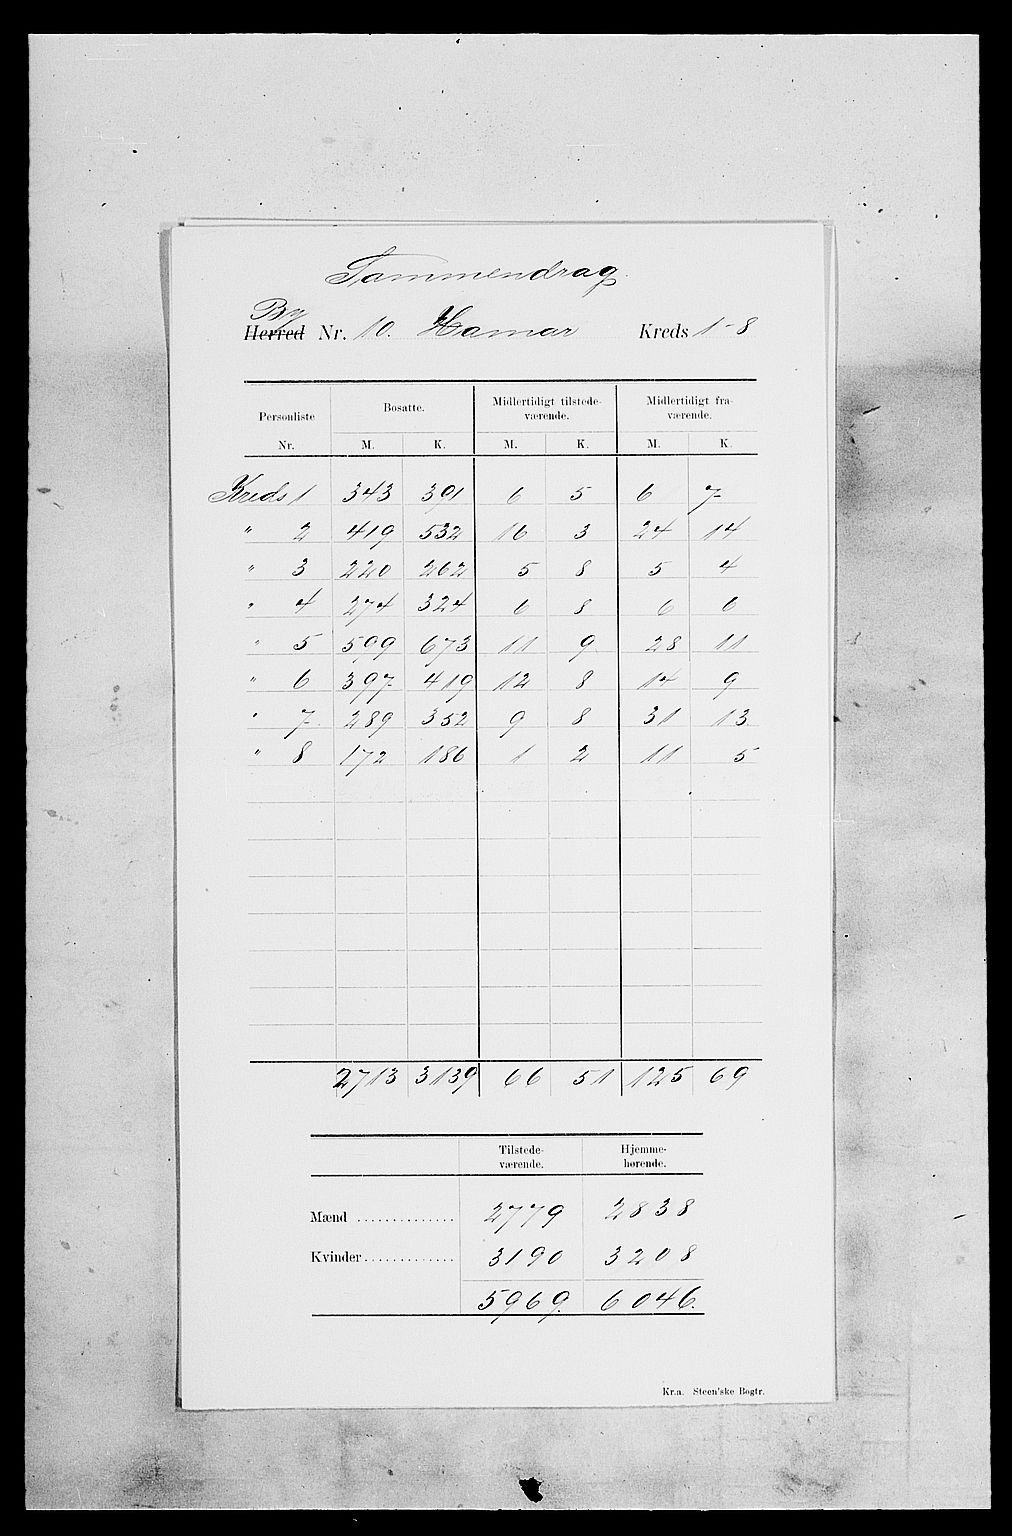 Sammendrag.
By
Herred Nr. 10. Hamar Kreds 1-8
Personliste Nr. Bosatte. Midlertidigt tilstedeværende. Midlertidigt fraværende.
M. K. M. K. M. K.
Kreds 1 343 391 6 5 6 7
" 2 419 532 16 3 24 14
" 3 220 262 5 8 5 4
" 4 274 324 6 8 6 6
" 5 599 673 11 9 28 11
" 6 397 419 12 8 14 9
" 7 289 352 9 8 31 13
" 8 172 186 1 2 11 5
2713 3139 66 51 125 69
Tilstedeværende. Hjemmehørende.
Mænd .............. 2779 2838
Kvinder ............. 3190 3208
5969. 6046.
Kr.a. Steen'ske Bogtr.